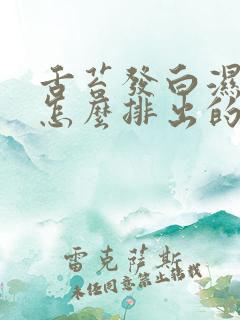 舌苔發白濕
怎麼排出的
雷克薩斯
未經同意禁止轉載